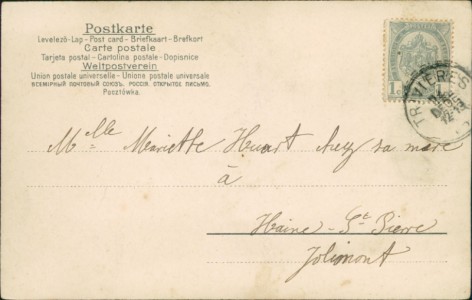 Postkarte
Levelező-Lap - Post card - Briefkaart - Brefkort
Carte postale
Tarjeta postal - Cartolina postale - Dopisnice
Weltpostverein
Union postale universelle - Unione postale universale
ВСЕМІРНЫЙ ПОЧТОВЫЙ СОЮЗЪ. РОССІЯ. ОТКРЫТОЕ ПИСЬМО.
Pocztówka.
1 c
TRIVIÈRES
Melle Mariette Huart chez sa mère
à
Haine-St Pierre
Jolimont